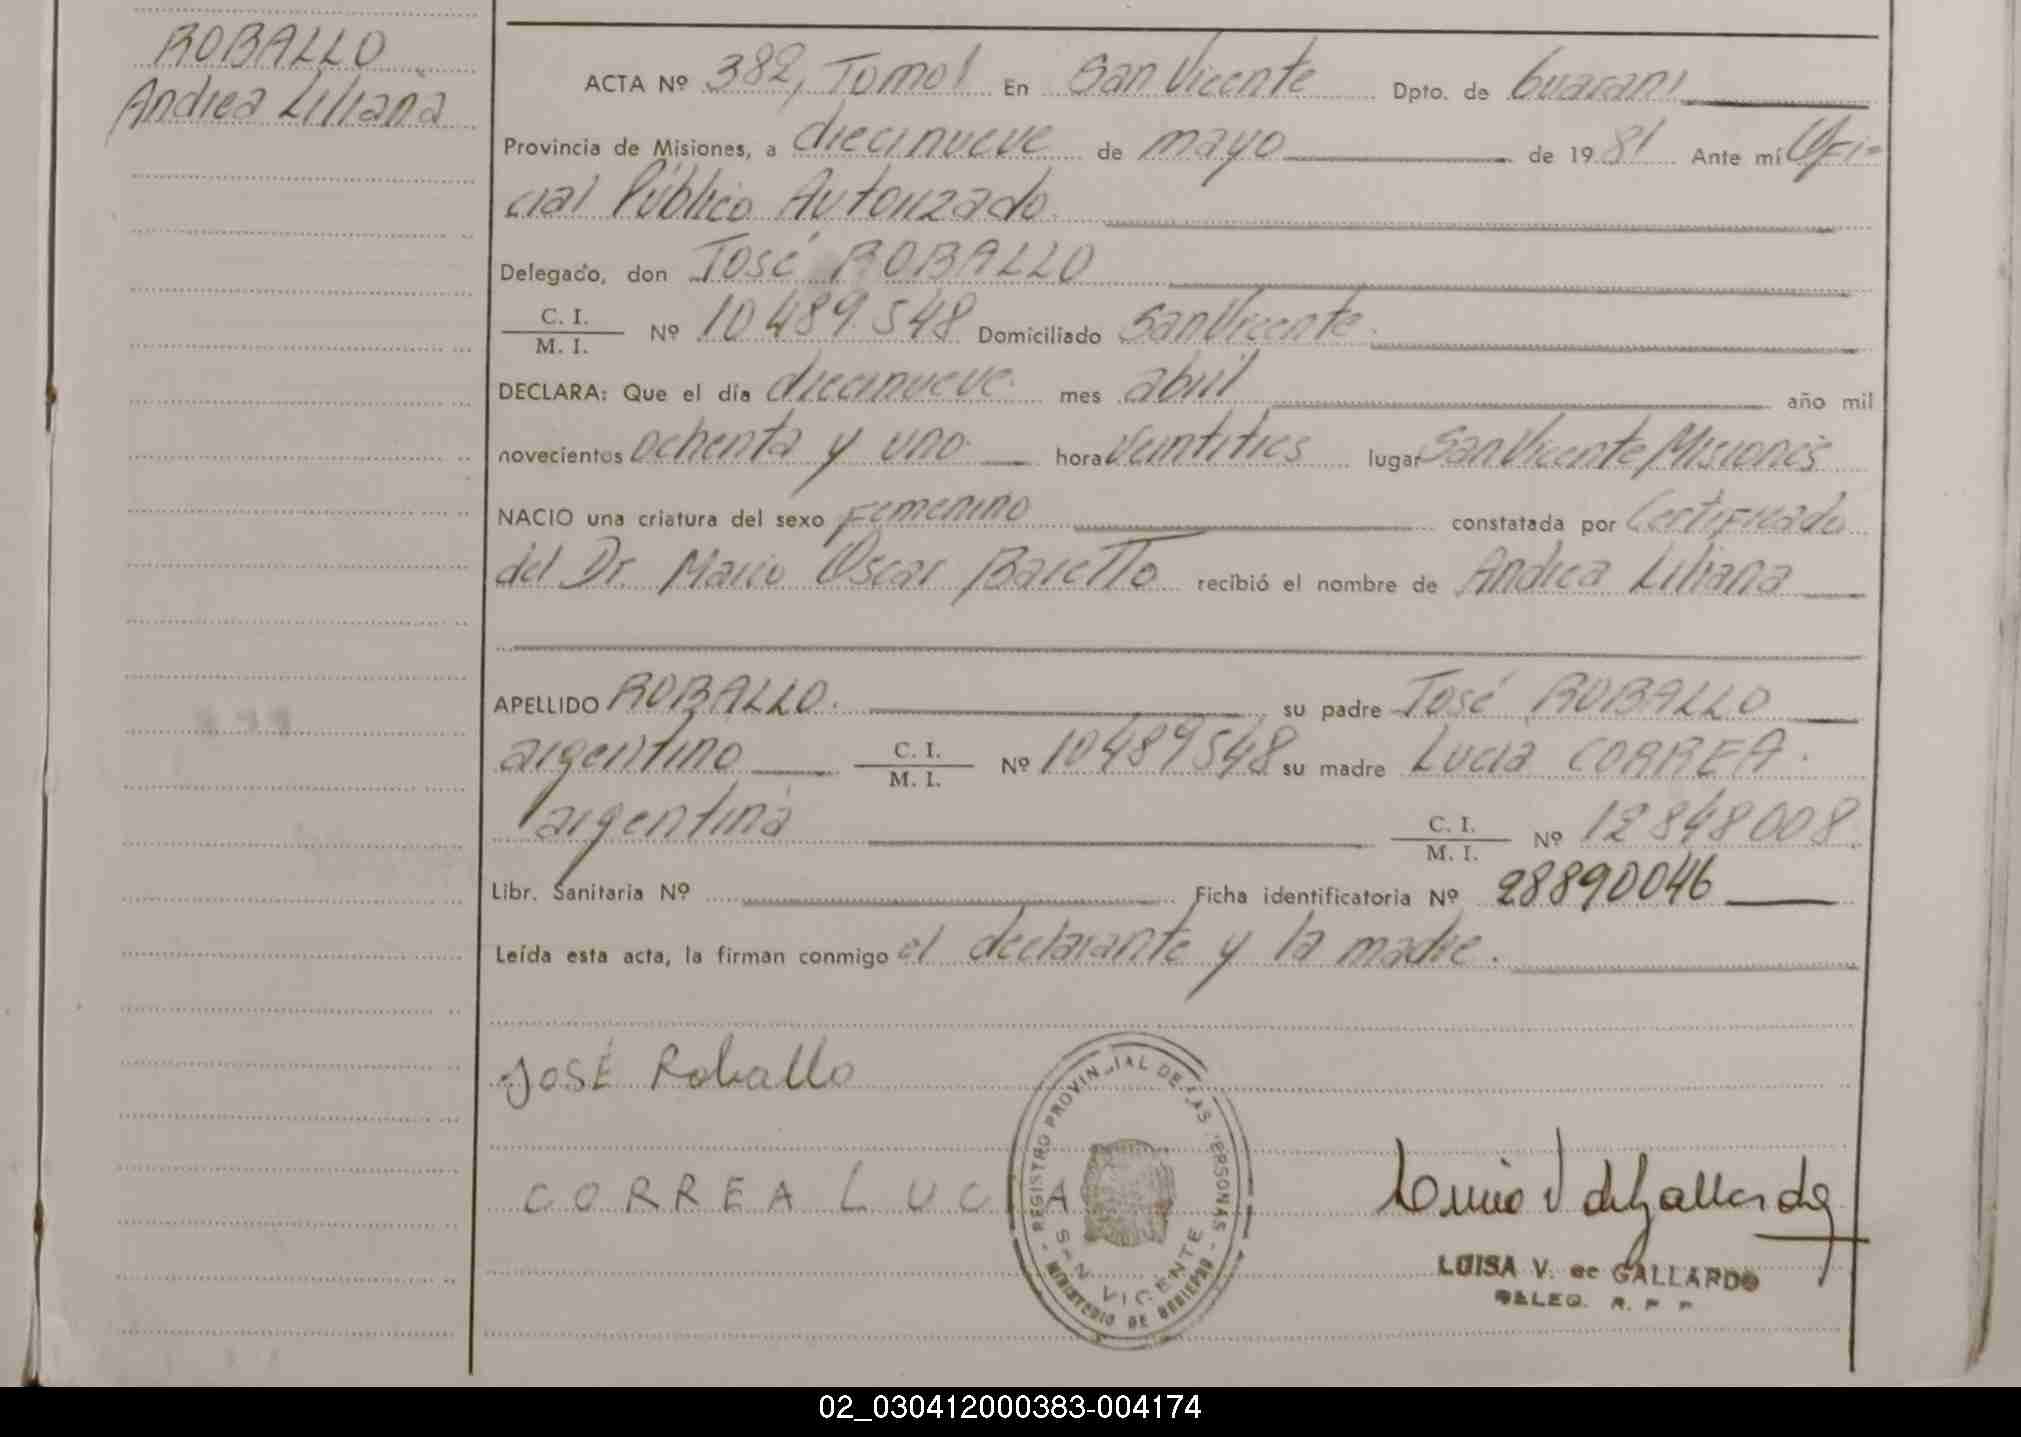 ROBALLO
Andrea Liliana
ACTA Nº 382, Tomo I En San Vicente Dpto. de Guaraní
Provincia de Misiones, a diecinueve de mayo de 1981 Ante mí Ofi-
cial Público Autorizado.
Delegado, don José ROBALLO
C. I.
M. I.
Nº 10489.548 Domiciliado San Vicente.
DECLARA: Que el día diecinueve mes abril año mil
novecientos ochenta y uno hora veintitres lugar San Vicente Misiones
NACIO una criatura del sexo Femenino constatada por Certificado
del Dr. Mario Oscar Baretto recibió el nombre de Andrea Liliana
APELLIDO ROBALLO. su padre José ROBALLO
argentino C. I. M. I. Nº 10489548 su madre Lucia CORREA.
argentina C. I. M. I. Nº 12848008
Libr. Sanitaria Nº Ficha identificatoria Nº 28890046
Leída esta acta, la firman conmigo el declarante y la madre.
José Roballo
CORREA LUCIA
REGISTRO PROVINCIAL DE LAS PERSONAS
SAN VICENTE
MINISTERIO DE GOBIERNO
LUISA V. de GALLARDO
DELEG. R. P. P.
02_030412000383-004174